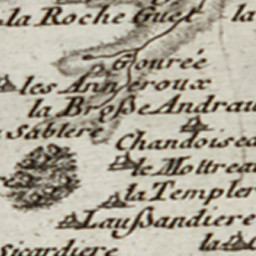 la Roche Guet la
Gourée
les Anneroux
la Broße Andrau
Sablere
Chandoisea
le Mottrea
la Templer
Laußandiere
la
Sicardiere